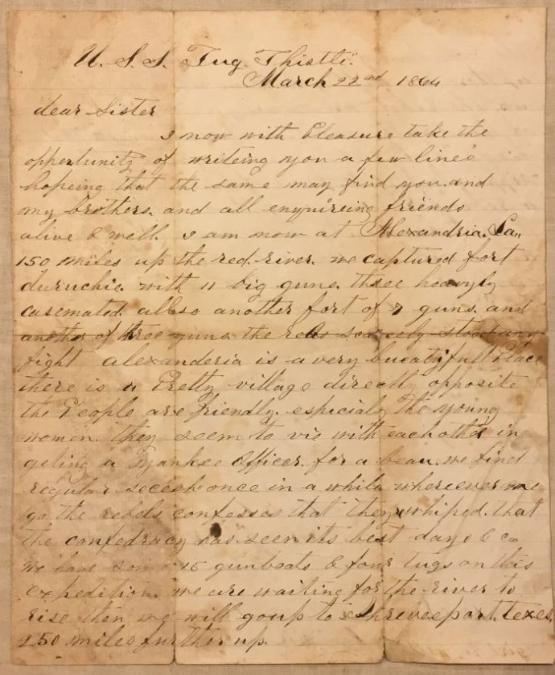 U. S. S. Tug Thistle
March 22nd 1864
dear Sister
I now with Pleasure take the
oppertunity of writeing you a few lines
hopeing that the same may find you and
my brothers. and all enquireing friends
alive & well. I am now at Alexandria. La..
150 miles up the red river. we captured fort
duruchie with 11 big guns three heavyly
casemated. allso another fort of 7 guns. and
another of three guns. the rebs scarcely stood any
fight alexanderia is a very beautyfull Place
there is a Pretty village directly opposite
the People are friendly. especialy the young
women. they seem to vie with each other in
geting a Yankee Officer. for a beau. we find
regular secesh once in a while. whereever we
go the rebels confesses that they whiped. that
the confedracy has seen its best days & c
we have some 15 gunboats & four tugs on this
expedition. we are waiting for the river to
rise then we will go up to Shreveeport. texes.
250 miles further up.